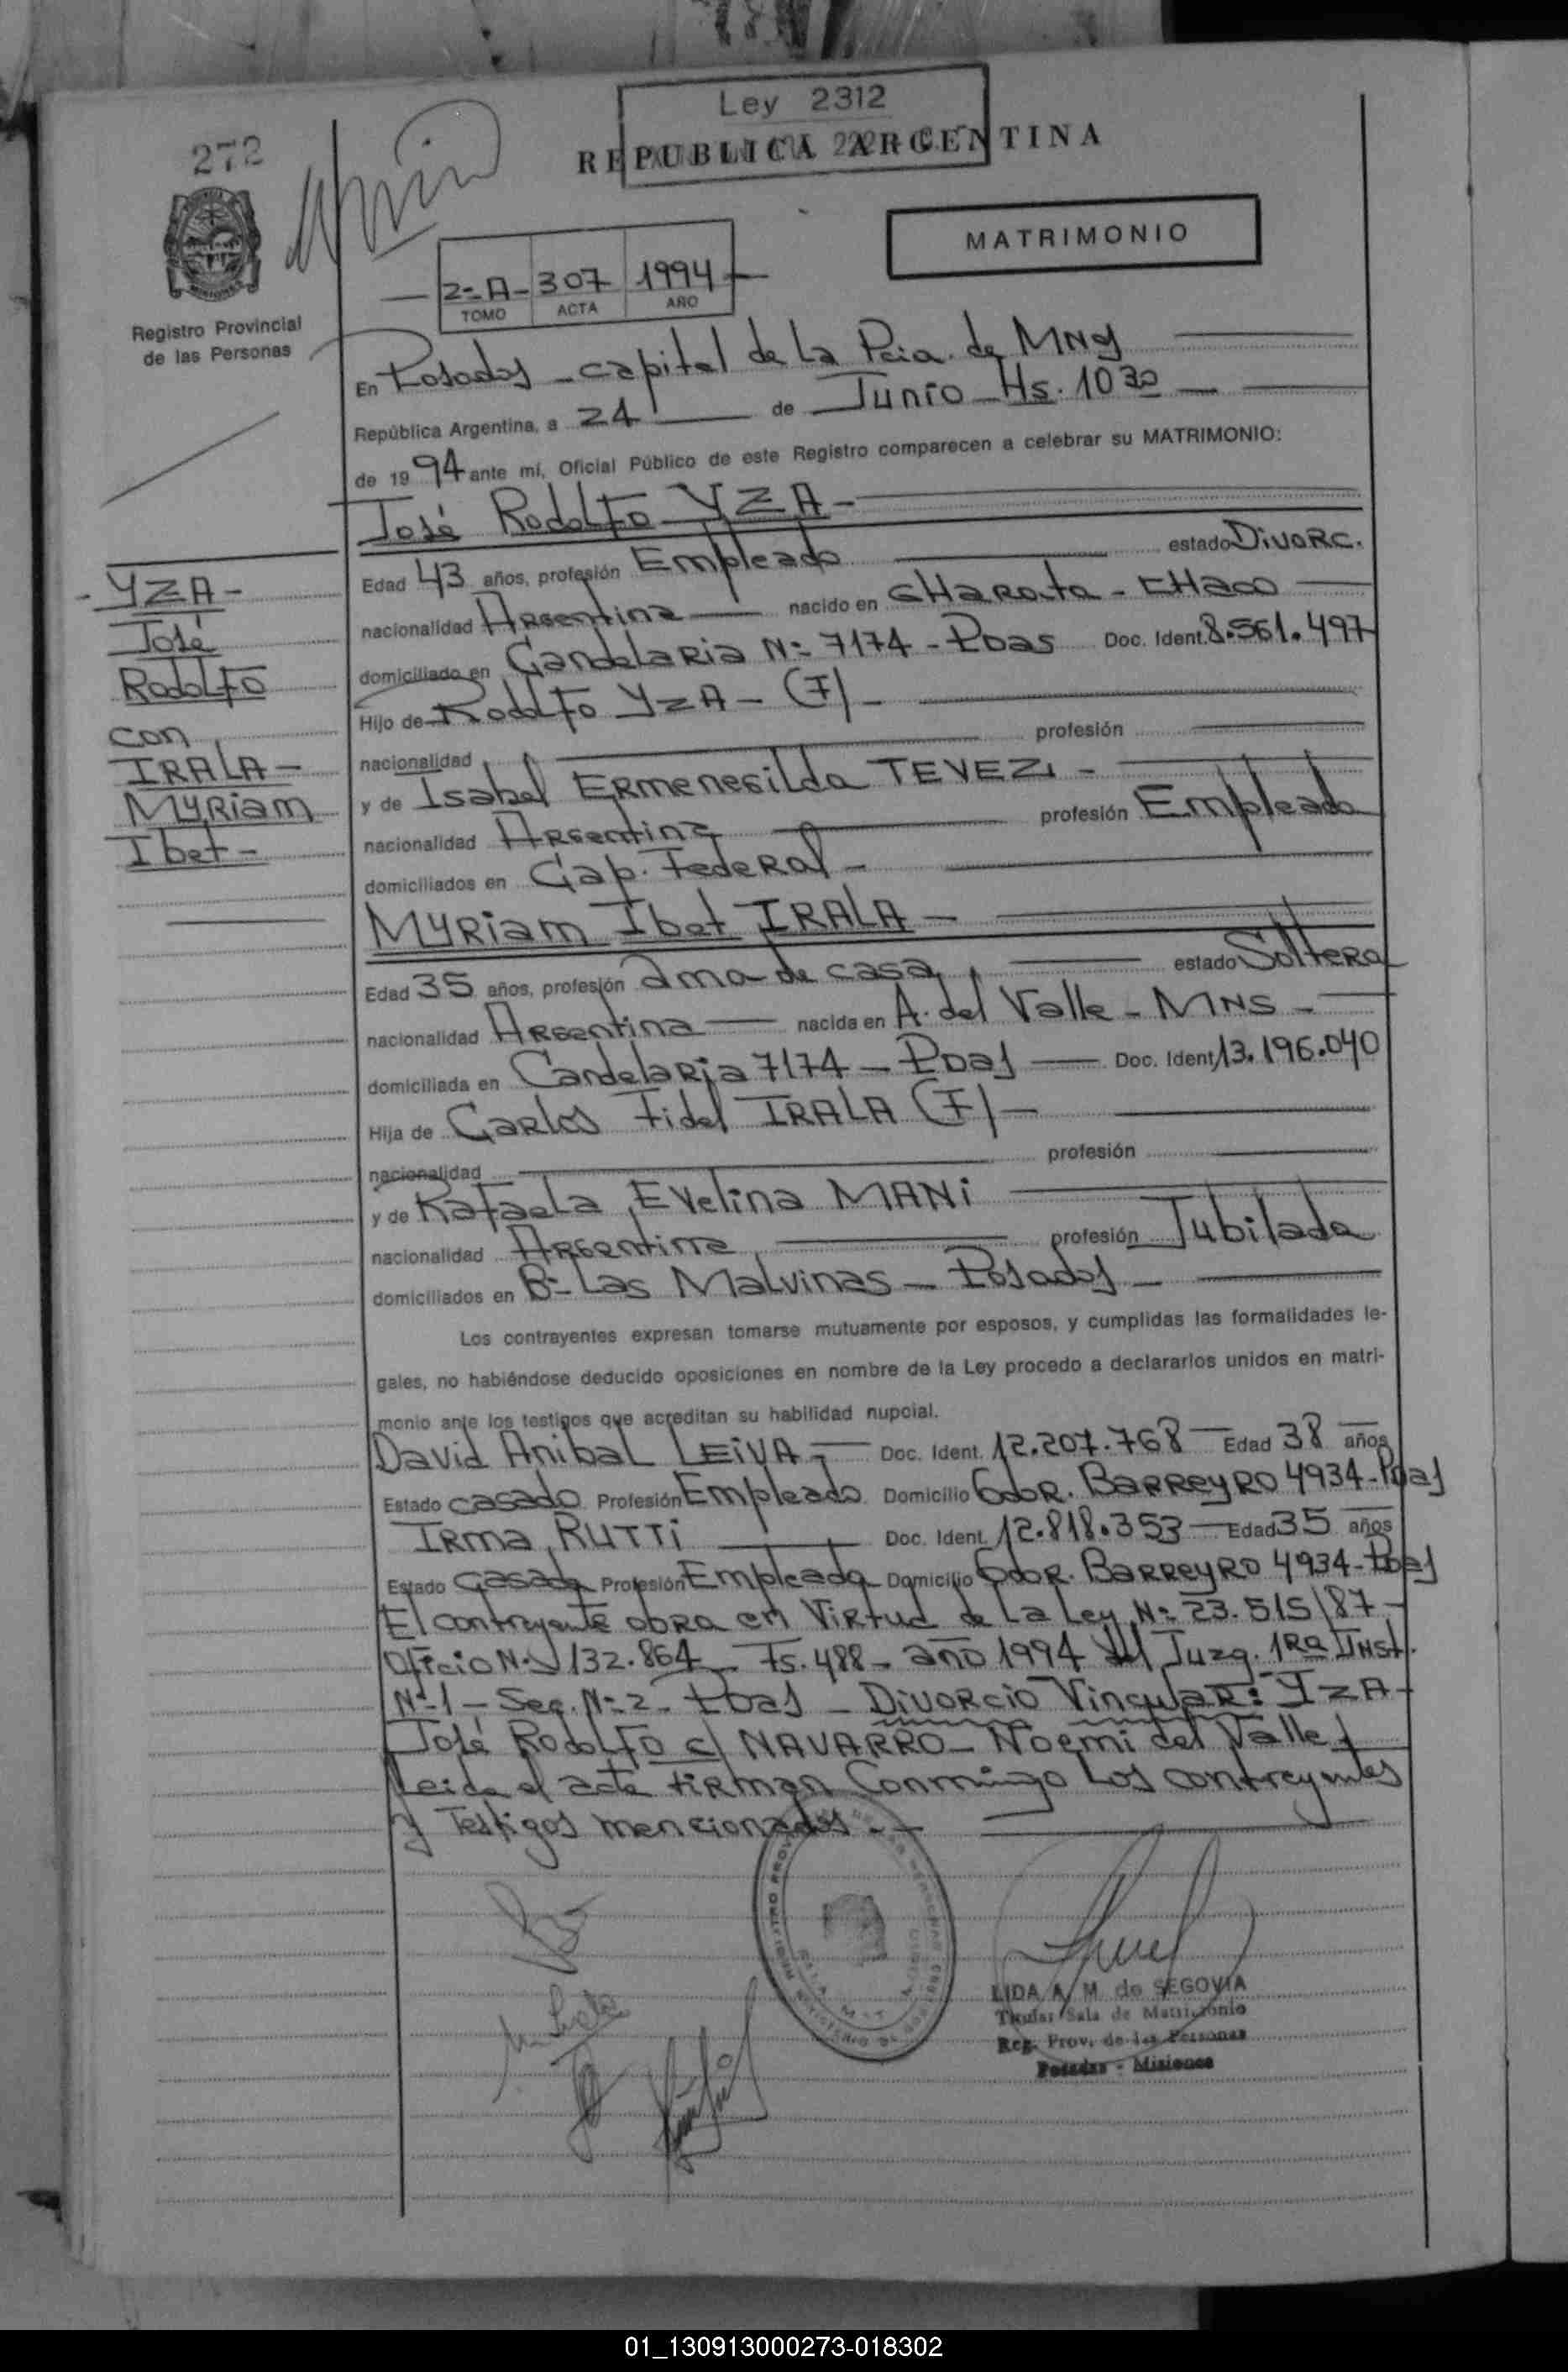 Ley 2312
REPUBLICA ARGENTINA
272
MATRIMONIO
2-A- 307 1994
TOMO ACTA AÑO
Registro Provincial
de las Personas
En Posadas - capital de La Pcia. de Mnes
República Argentina, a 24 de Junio - Hs. 10 30
de 19 94 ante mí, Oficial Público de este Registro comparecen a celebrar su MATRIMONIO:
José Rodolfo YZA -
Edad 43 años, profesión Empleado estado Divorc.
nacionalidad Argentina nacido en CHarata - CHaco
domiciliado en Candelaria Nº 7174 - Pdas Doc. Ident. 8.561.497
Hijo de Rodolfo YzA - (F) -
nacionalidad profesión
y de Isabel Ermenegilda TEVEZ -
nacionalidad Argentina profesión Empleada
domiciliados en Cap. Federal -
Myriam Ibet IRALA -
Edad 35 años, profesión ama de casa estado Soltera
nacionalidad Argentina nacida en A. del Valle - Mns -
domiciliada en Candelaria 7174 - Pdas Doc. Ident. 13.196.040
Hija de Carlos Fidel IRALA (F) -
nacionalidad profesión
y de Rafaela Evelina MANi
nacionalidad Argentina profesión Jubilada
domiciliados en Bº Las Malvinas - Posadas -
Los contrayentes expresan tomarse mutuamente por esposos, y cumplidas las formalidades le-
gales, no habiéndose deducido oposiciones en nombre de la Ley procedo a declararlos unidos en matri-
monio ante los testigos que acreditan su habilidad nupcial.
David Anibal LEiVA - Doc. Ident. 12.207.768 - Edad 38 años
Estado casado Profesión Empleado Domicilio Gdor. Barreyro 4934 - Pdas
Irma RUTTi Doc. Ident. 12.818.353 - Edad 35 años
Estado Casada Profesión Empleada Domicilio Gdor. Barreyro 4934 - Pdas
El contrayente obra en Virtud de La Ley Nº 23.515/87 -
Oficio Nº 132.864 - Fs. 488 - año 1994 del Juzg. 1Ra Inst.
Nº 1 - Sec. Nº 2 - Pdas - Divorcio Vincular: YzA -
José Rodolfo c/ NAVARRO - Noemi del Valle
Leida el acta firman Conmigo Los contrayentes
y Testigos mencionados. -
YZA -
José
Rodolfo
con
IRALA -
Myriam
Ibet -
LIDA A. M. de SEGOVIA
Titular Sala de Matrimonio
Reg. Prov. de las Personas
Posadas - Misiones
01_130913000273-018302